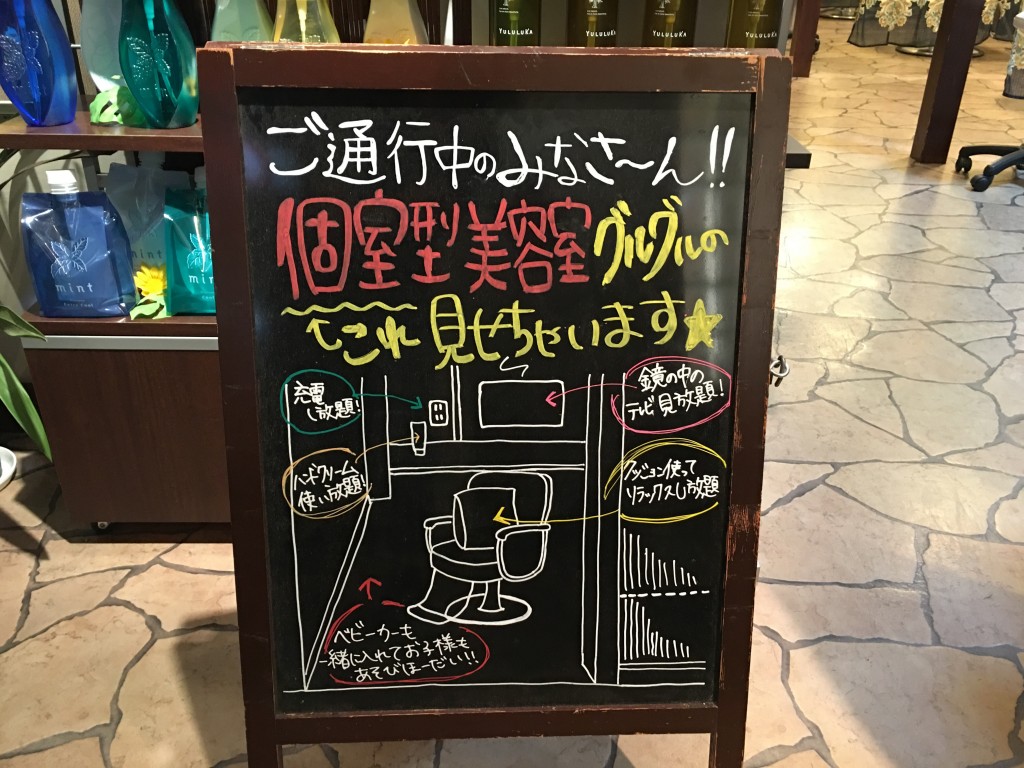 YULULUKA
YULULUKA
YULULUKA
YULULUKA
mint
mint
ご通行中のみなさ〜ん!!
個室型美容室グルグルの
ここれ見せちゃいます☆
充電
し放題!
鏡の中の
テレビ見放題!
ハンドクリーム
使い放題!
クッション使って
リラックスし放題
ベビーカーも
一緒に入れてお子様も
あそびほーだい!!